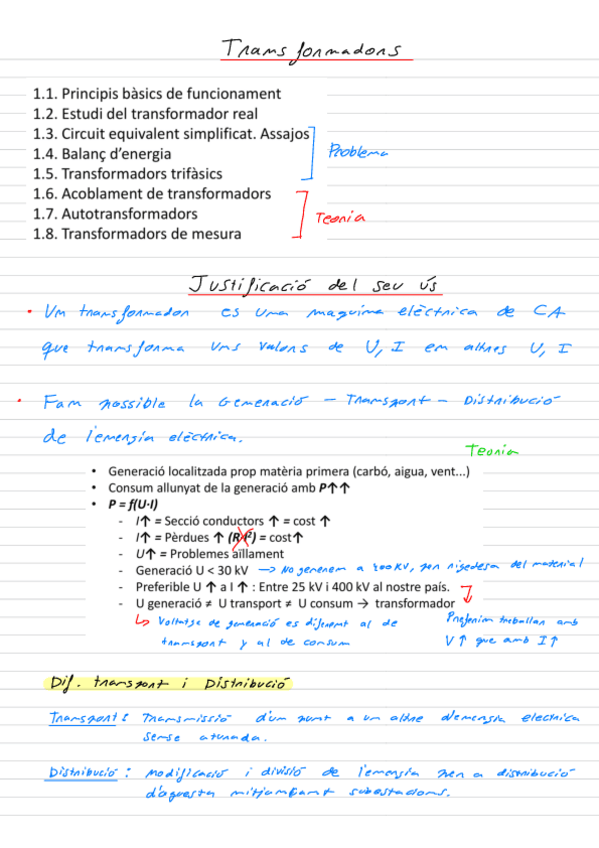 Transformadors
1.1. Principis bàsics de funcionament
1.2. Estudi del transformador real
1.3. Circuit equivalent simplificat. Assajos
1.4. Balanç d'energia
Problema
1.5. Transformadors trifàsics
1.6. Acoblament de transformadors
1.7. Autotransformadors
Teoria
1.8. Transformadors de mesura
Justificació del seu ús
• Un transformador es una maquina elèctrica de CA
que transforma uns valors de U, I en altres U, I
• Fam possible la Generació - Transport - Distribució
de l'energía elèctrica.
Teoria
• Generació localitzada prop matèria primera (carbó, aigua, vent...)
• Consum allunyat de la generació amb P↑↑
• P = f(U·I)
- I↑ = Secció conductors ↑ = cost ↑
- I↑ = Pèrdues ↑ (R·I²) = cost↑
- U↑ = Problemes aïllament
- Generació U < 30 kV → No generem a 400KV, per rigedesa del material
- Preferible U ↑ a I ↑ : Entre 25 kV i 400 kV al nostre país.
- U generació ≠ U transport ≠ U consum → transformador
↳ Voltatge de generació es diferent al de
transport y al de consum
Preferim treballar amb
V↑ que amb I↑
Dif. transport i Distribució
Transport: Transmissió d'un punt a un altre d'energia electrica
sense aturada.
Distribució: modificació i divisió de l'energia per a distribució
d'aquesta mitjançant subestacions.